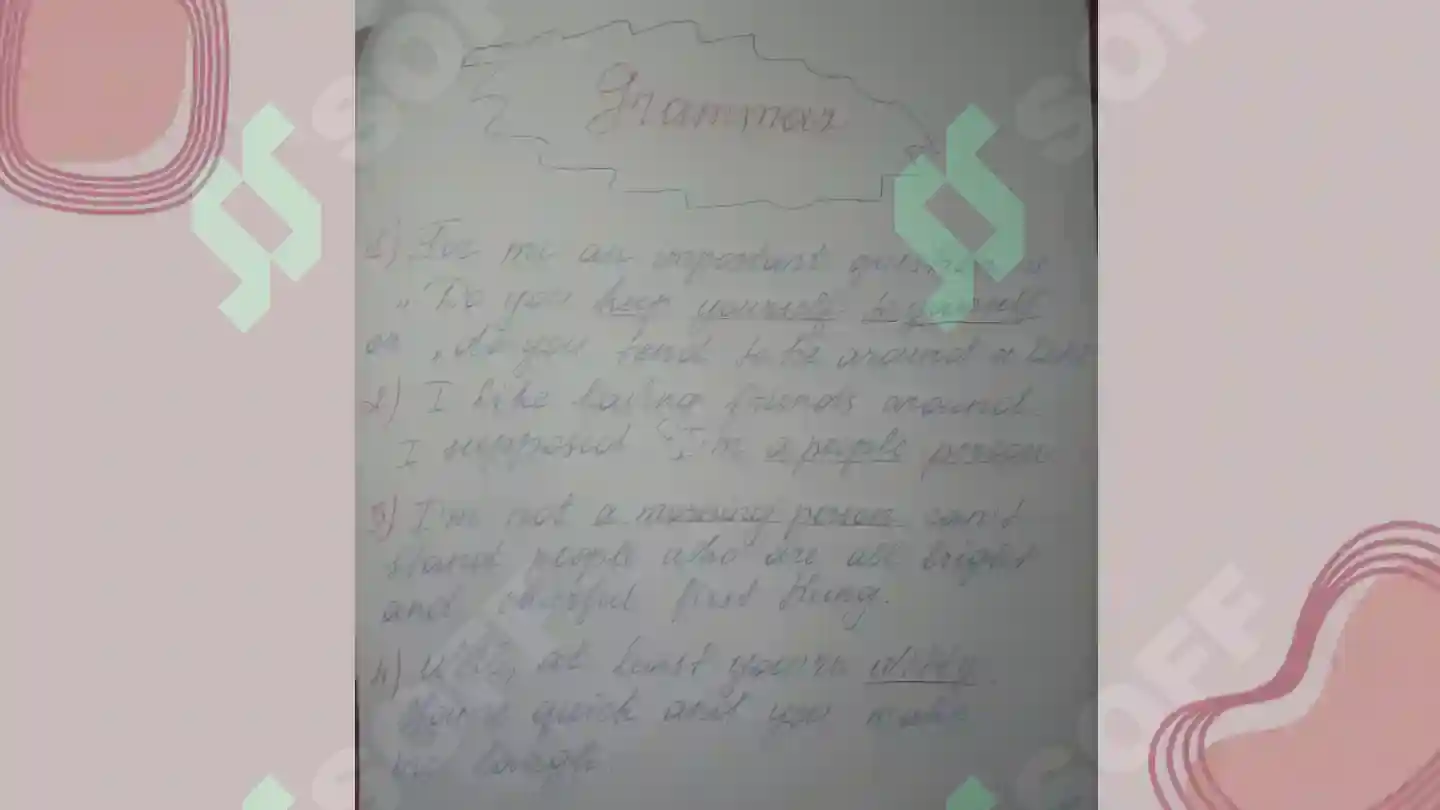 Grammar
1) For me an important question is
„Do you keep yourself to yourself
or „do you tend to be around a
2) I like having friends around.
I supposed "I'm a people person
3) I'm not a morning person can't
stand people who are all bright
and cheerful first thing.
4) Well, at least you're witty.
You're quick and you make
me laugh.
SOFF
SOFF
SOFF
SOFF